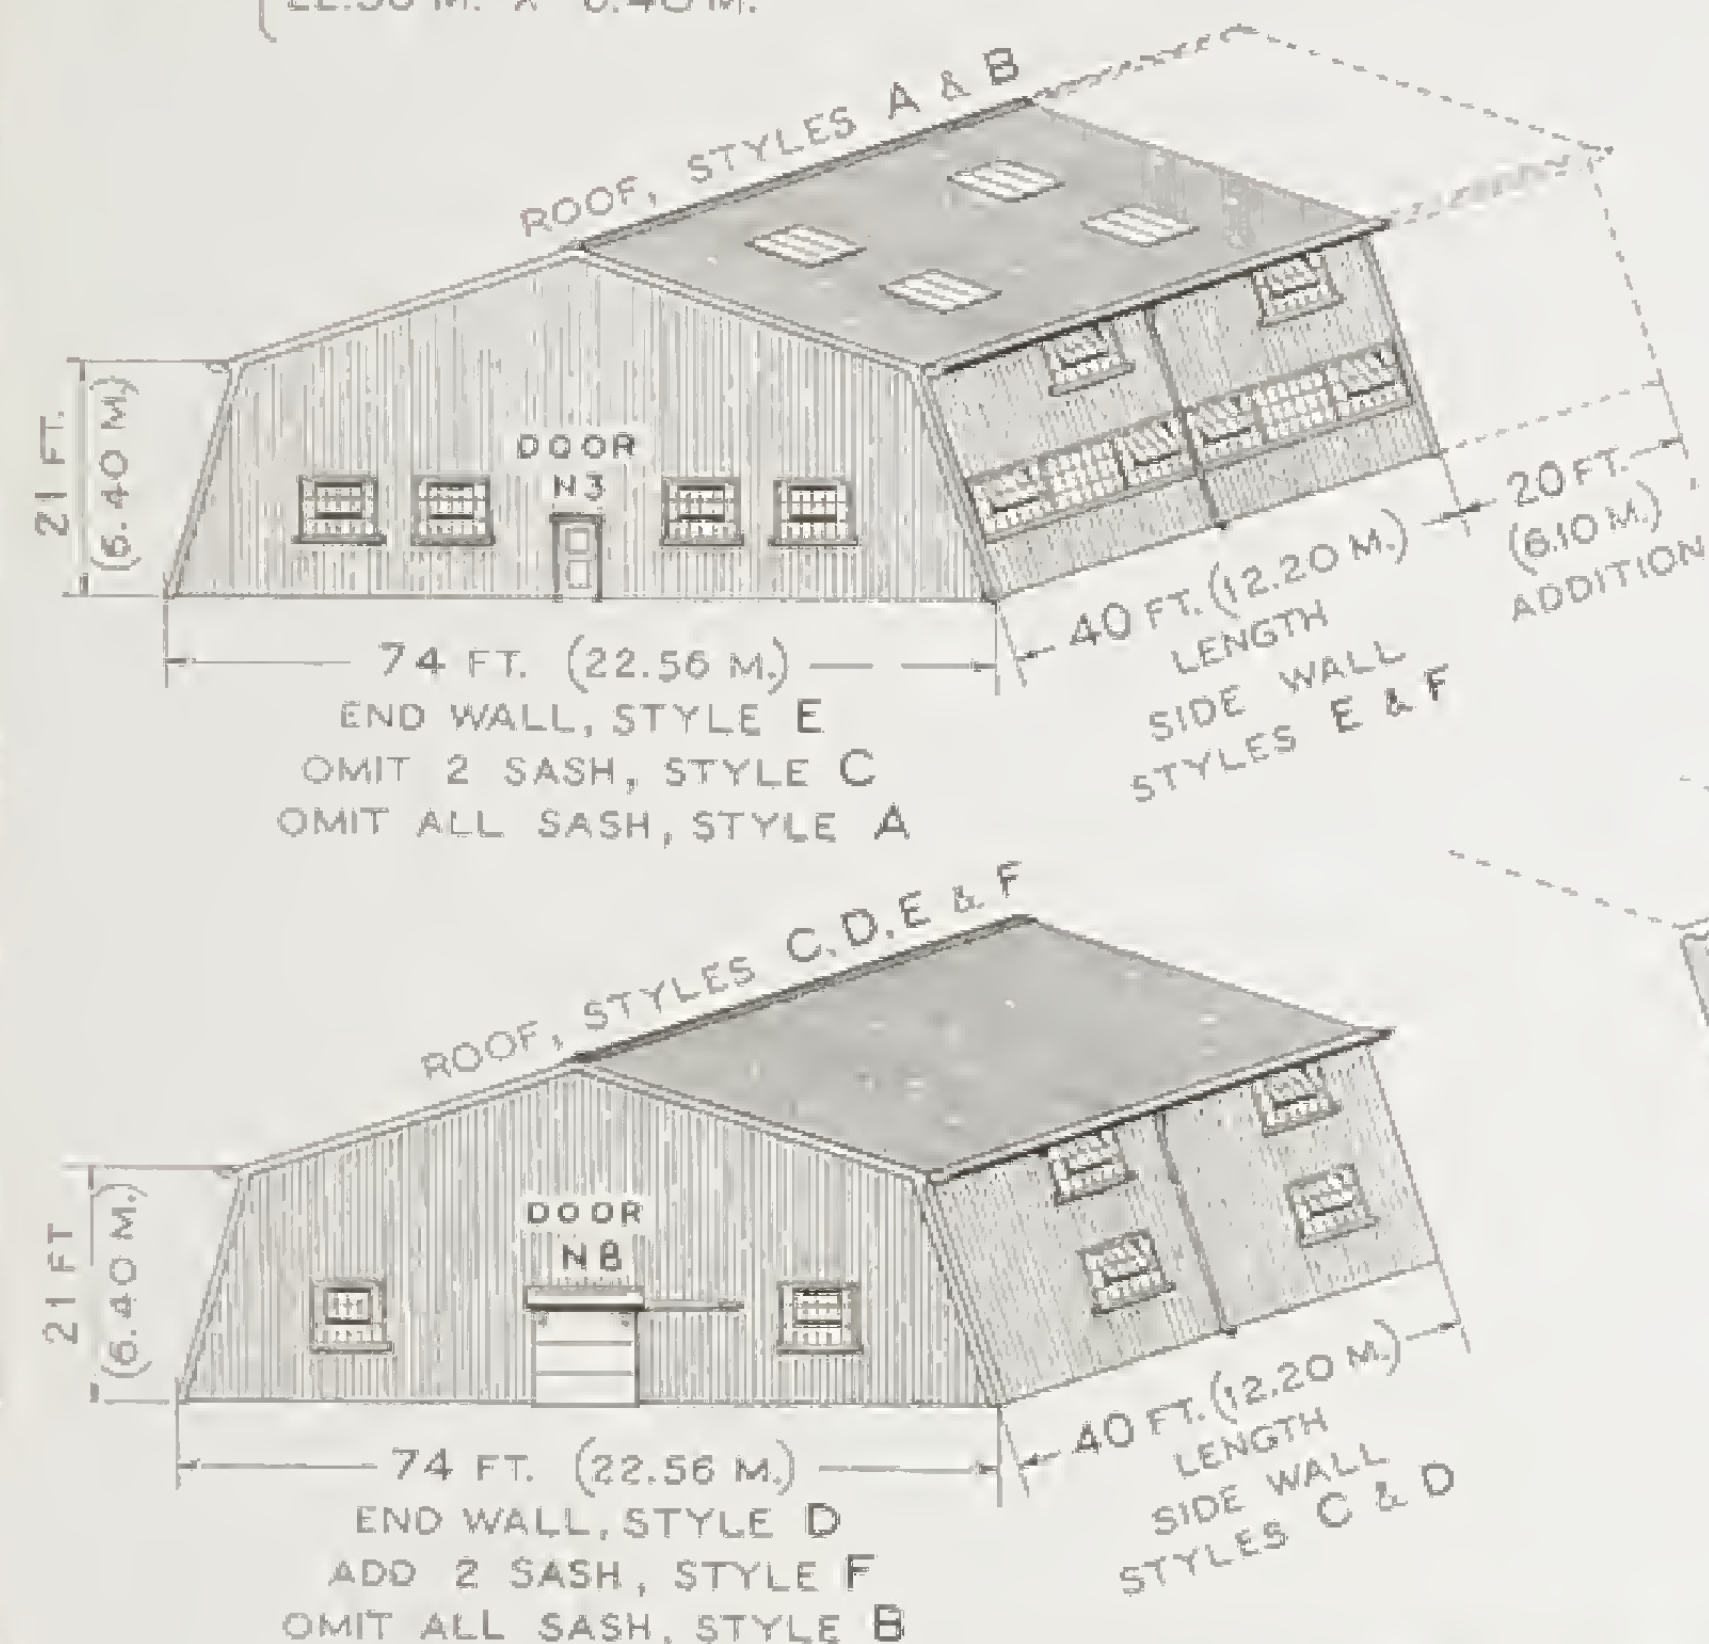 22.56 M. X 6.40 M.
ROOF, STYLES A & B
21 FT.
(6.40 M)
DOOR
N3
74 FT. (22.56 M.)
END WALL, STYLE E
OMIT 2 SASH, STYLE C
OMIT ALL SASH, STYLE A
40 FT. (12.20 M.)
LENGTH
SIDE WALL
STYLES E & F
20 FT.
(6.10 M.)
ADDITION
ROOF, STYLES C, D, E & F
21 FT
(6.40 M.)
DOOR
N8
74 FT. (22.56 M.)
END WALL, STYLE D
ADD 2 SASH, STYLE F
OMIT ALL SASH, STYLE B
40 FT. (12.20 M.)
LENGTH
SIDE WALL
STYLES C & D